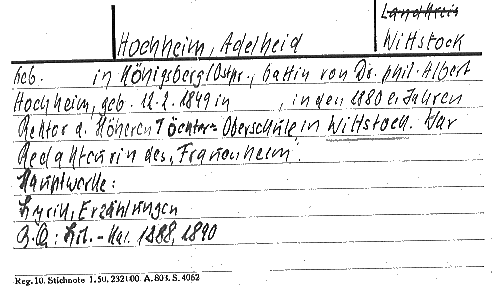 Landkreis
Hochheim, Adelheid Wittstock
Geb. in Königsberg/Ostpr., Gattin von Dr. phil. Albert
Hochheim, geb. 12.2.1849 in , in den 1880er Jahren
Rektor d. Höheren Töchter-Oberschule in Wittstock. War
Redakteurin des „Frauenheim".
Hauptwerke:
Lyrik, Erzählungen
B.Q.: Lit.-Kal. 1888, 1890
Reg. 10. Stichnote 1. 50. 232100. A. 803. S. 4062